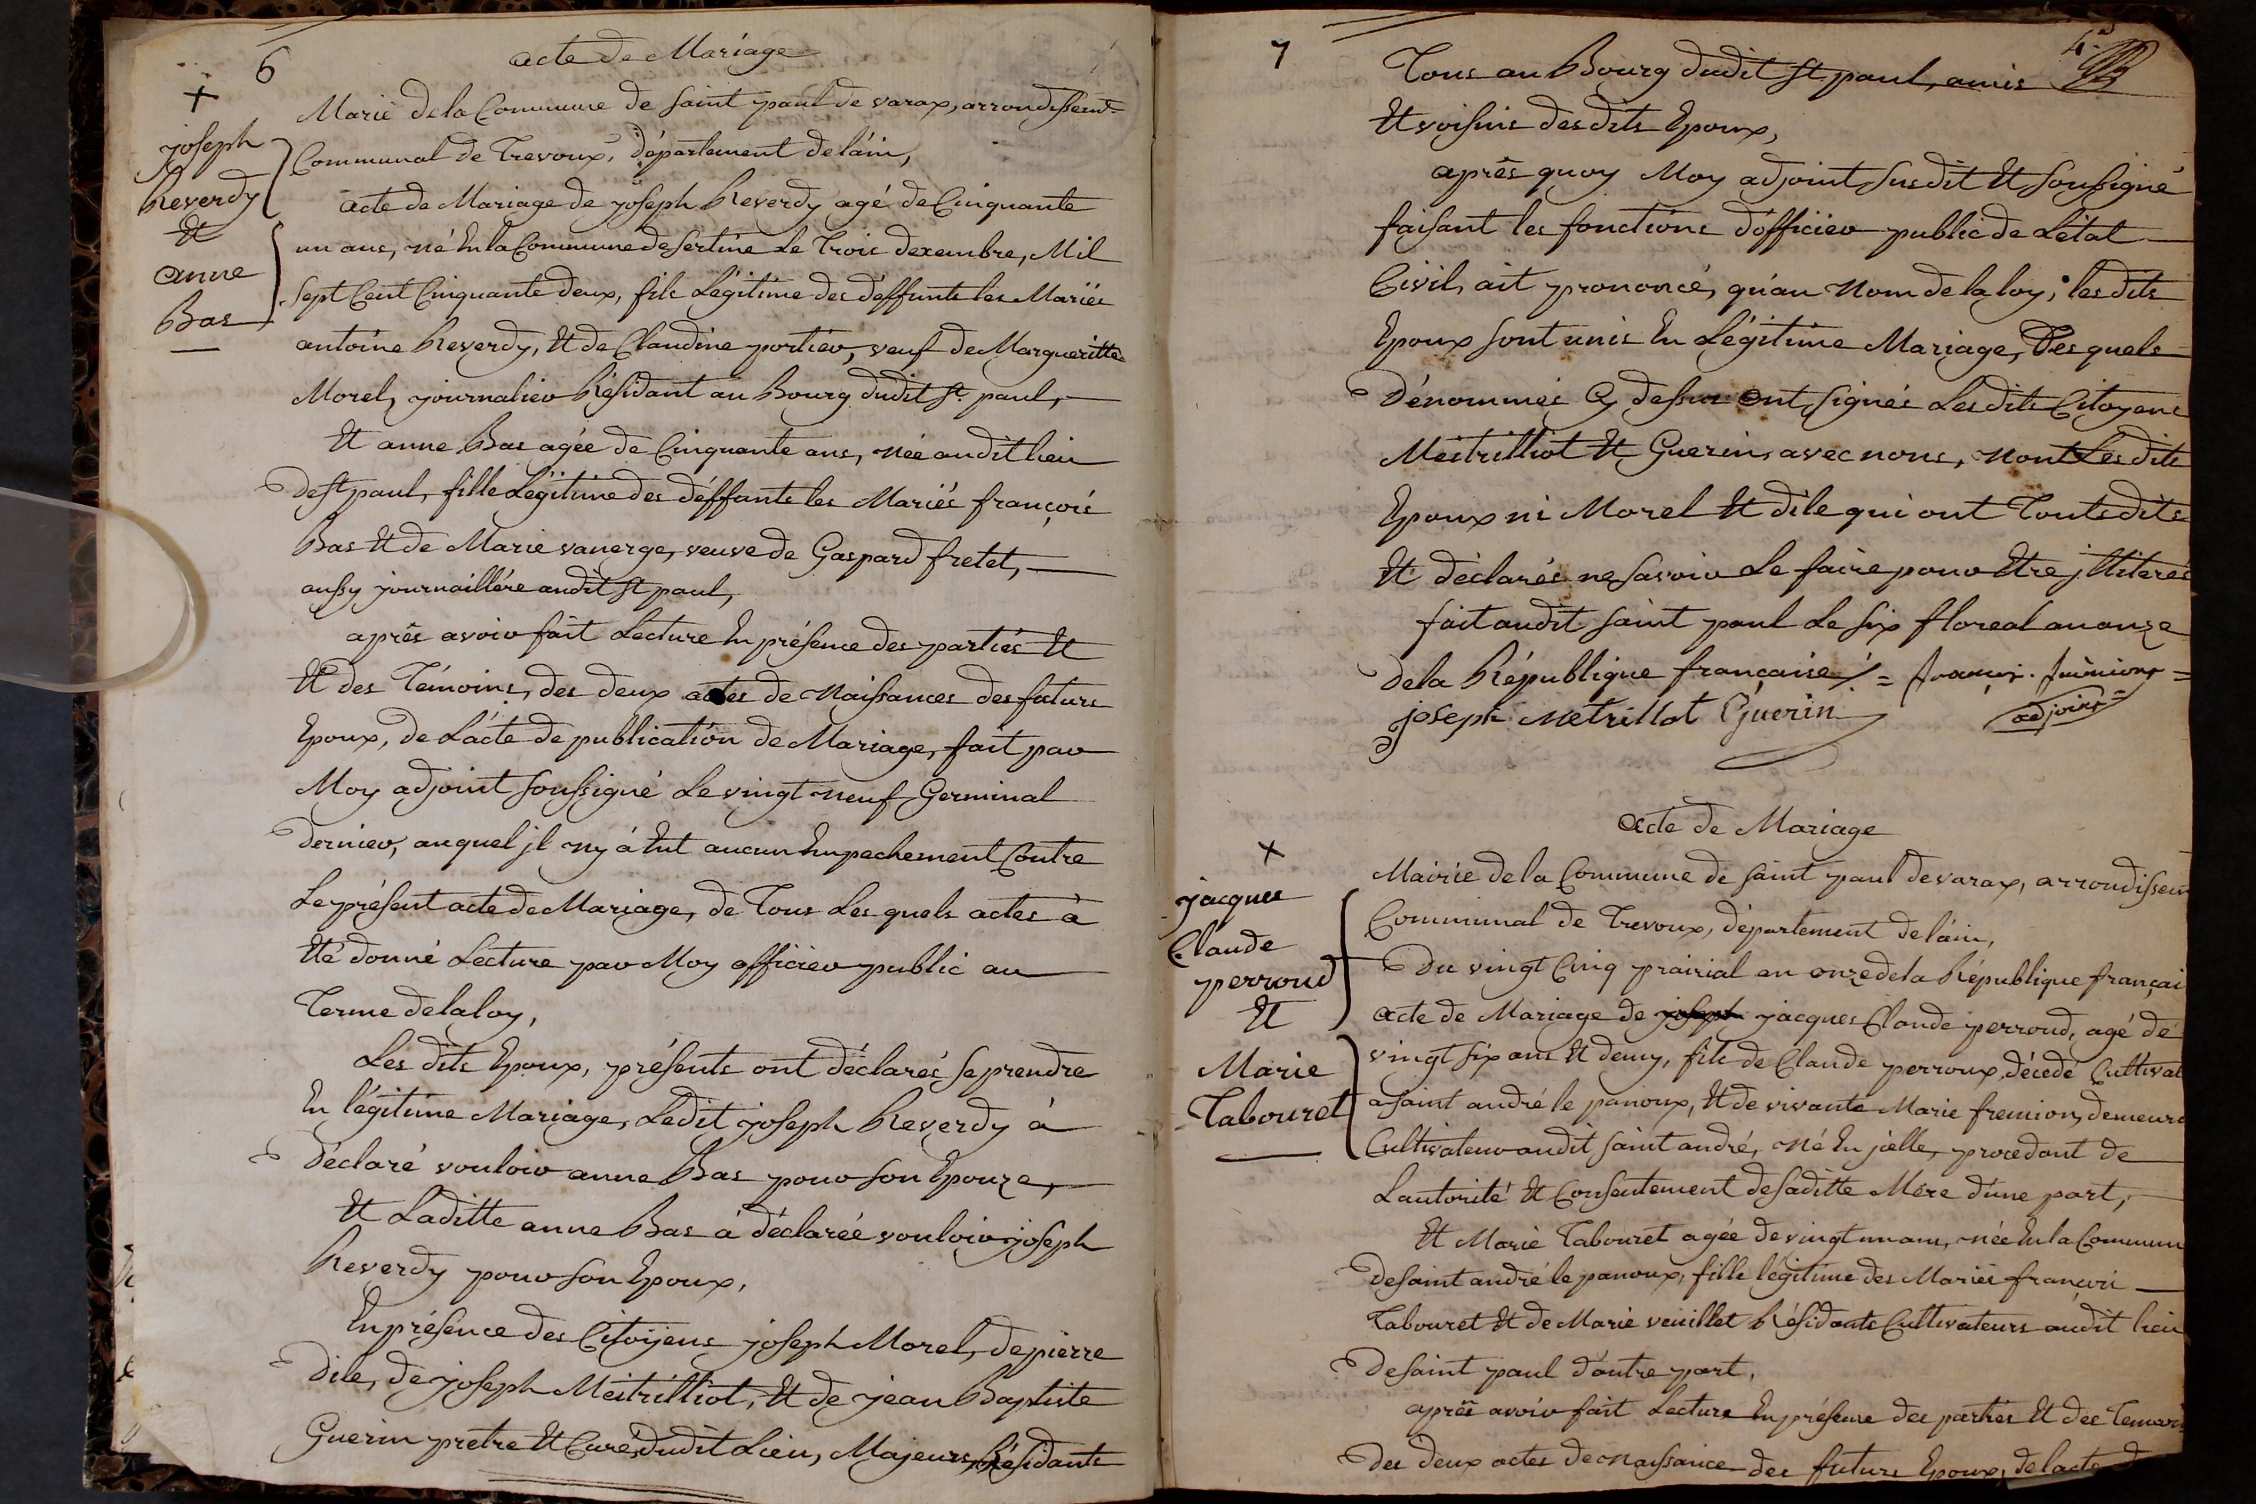 6
acte de Mariage
+
joseph
Reverdy
Et
anne
Bas
Marië dela Commune de saint paul de varax, arrondissemt
Communal de Trevoux, département de láin,
acte de Mariage de joseph Reverdy agé de Cinquante
un ans, né En la Commune de sertine Le Trois dexembre, Mil
sept Cent Cinquante deux, fils Légitime des déffunts les Mariés
antoine Reverdy, Et de Claudine portier, veuf de Margueritte
Morel, journalier Résidant au Bourg dudit st. paul,
Et anne Bas agée de Cinquante ans, née audit lieu
de st paul, fille Légitime des déffunts les Mariés françois
Bas Et de Marie vanerge, veuve de Gaspard fretet,
aussy journaillére audit st paul,
aprës avoir fait Lecture En présence des partiés Et
Et des Témoins, des deux actes de Naissances des futurs
Epoux, de Lácte de publication de Mariage, fait par
Moy adjoint soussigné Le vingt neuf Germinal
dernier, auquel jl ny á Eut aucun Empechement Contre
Le présent acte de Mariage, de Tous Les quels actes à
Eté donné Lecture par Moy officier public au
Terme de la loy,
Les dits Epoux, présents ont déclarés se prendre
En légitime Mariage, Ledit joseph Reverdy à
déclaré vouloir anne Bas pour son Epouze,
Et Laditte anne Bas á déclarée vouloir joseph
Reverdy pour son Epoux,
En présence des Citoÿens joseph Morel, de pierre
dile, de joseph Meitrilliot, Et de jean Baptiste
Guerin pretre Et Curé, dudit Lieu, Majeurs, Résidants
7
4.e
Tous au Bourg dudit st paul, amis
Et voisins des dits Epoux,
aprës quoy Moy adjoint susdit Et soussigné
faisant les fonctions d'officier public de Létat
Civil, ait prononcé, qu'au Nom de la loy, les dits
Epoux sont unis En Légitime Mariage, Des quels
dénommés Cy dessus ont signés Les dits Citoyens
Meitrilliot Et Guerin, avec nous, Nont Les dits
Epoux ni Morel Et dile qui ont Touts dits
Et déclarés ne savoir Le faire pour Etre jlliterés
fait audit saint paul Le six floreal an onze
dela République française /. =
adjoint =
joseph Metrillot Guerin
acte de Mariage
+
jacques
Claude
perroud
Et
Marie
Tabouret
Mairie dela Commune de saint paul de varax, arrondissem
Communal de Trevoux, département de láin,
Du vingt Cinq prairial an onze dela République françai
acte de Mariage de joseph jacques Claude perroud, agé de
vingt six ans Et demy, fils de Claude perroux, décedé Cultivat
a saint andré le panoux, Et de vivante Marie fremion, demeura
Cultivateur audit saint andré, Né En jcelle, procedant de
Lautorité Et Consentement de saditte Mére d'une part,
Et Marie Tabouret agée de vingt un ans, née En la Commun
de saint andré le panoux, fille légitime des Mariés françois
Tabouret Et de Marie veuillet Résidants Cultivateurs audit lieu
de saint paul d'autre part,
aprës avoir fait Lecture En présence des partiés Et des Temoin
des deux actes de Naissance des futurs Epoux, de lacte d